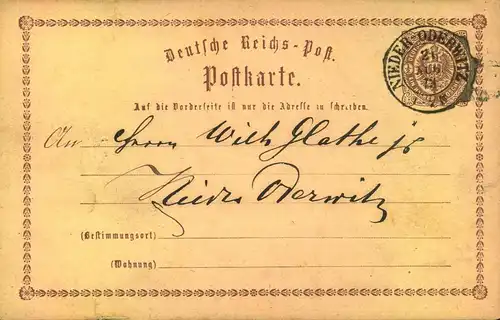 Deutsche Reichs-Post.
NIEDER-ODERWITZ
Postkarte.
Auf die Vorderseite ist nur die Adresse zu schreiben.
An Herrn Wilh Glathe jr
Nieder Oderwitz
(Bestimmungsort)
(Wohnung)